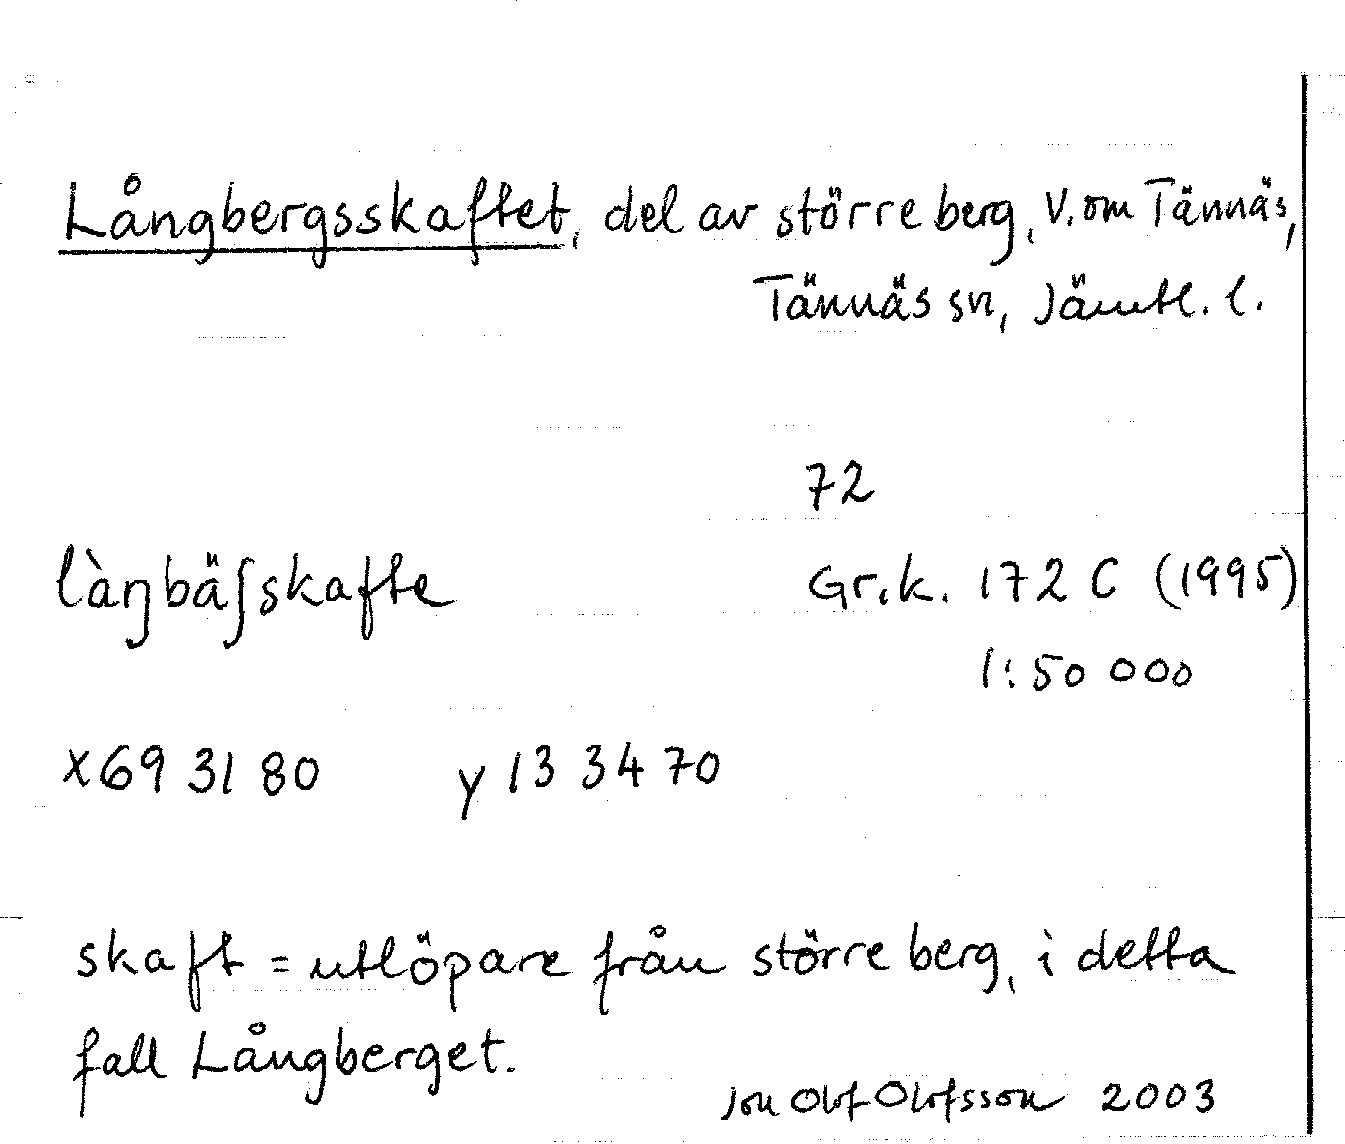 Långbergsskaftet, del av större berg, V. om Tännäs,
Tännäs sn, Jämtl. l.
72
làŋbäʃskafte
Gr.k. 172 C (1995)
1:50 000
x69 31 80 y 13 34 70
skaft = utlöpare från större berg, i detta
fall Långberget.
Jon Olof Olofsson 2003